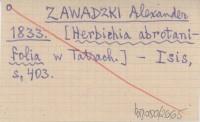 ZAWADZKI Alexander
1833. [Herbichia abrotani-
folia w Tatrach.] - Isis,
s. 403.